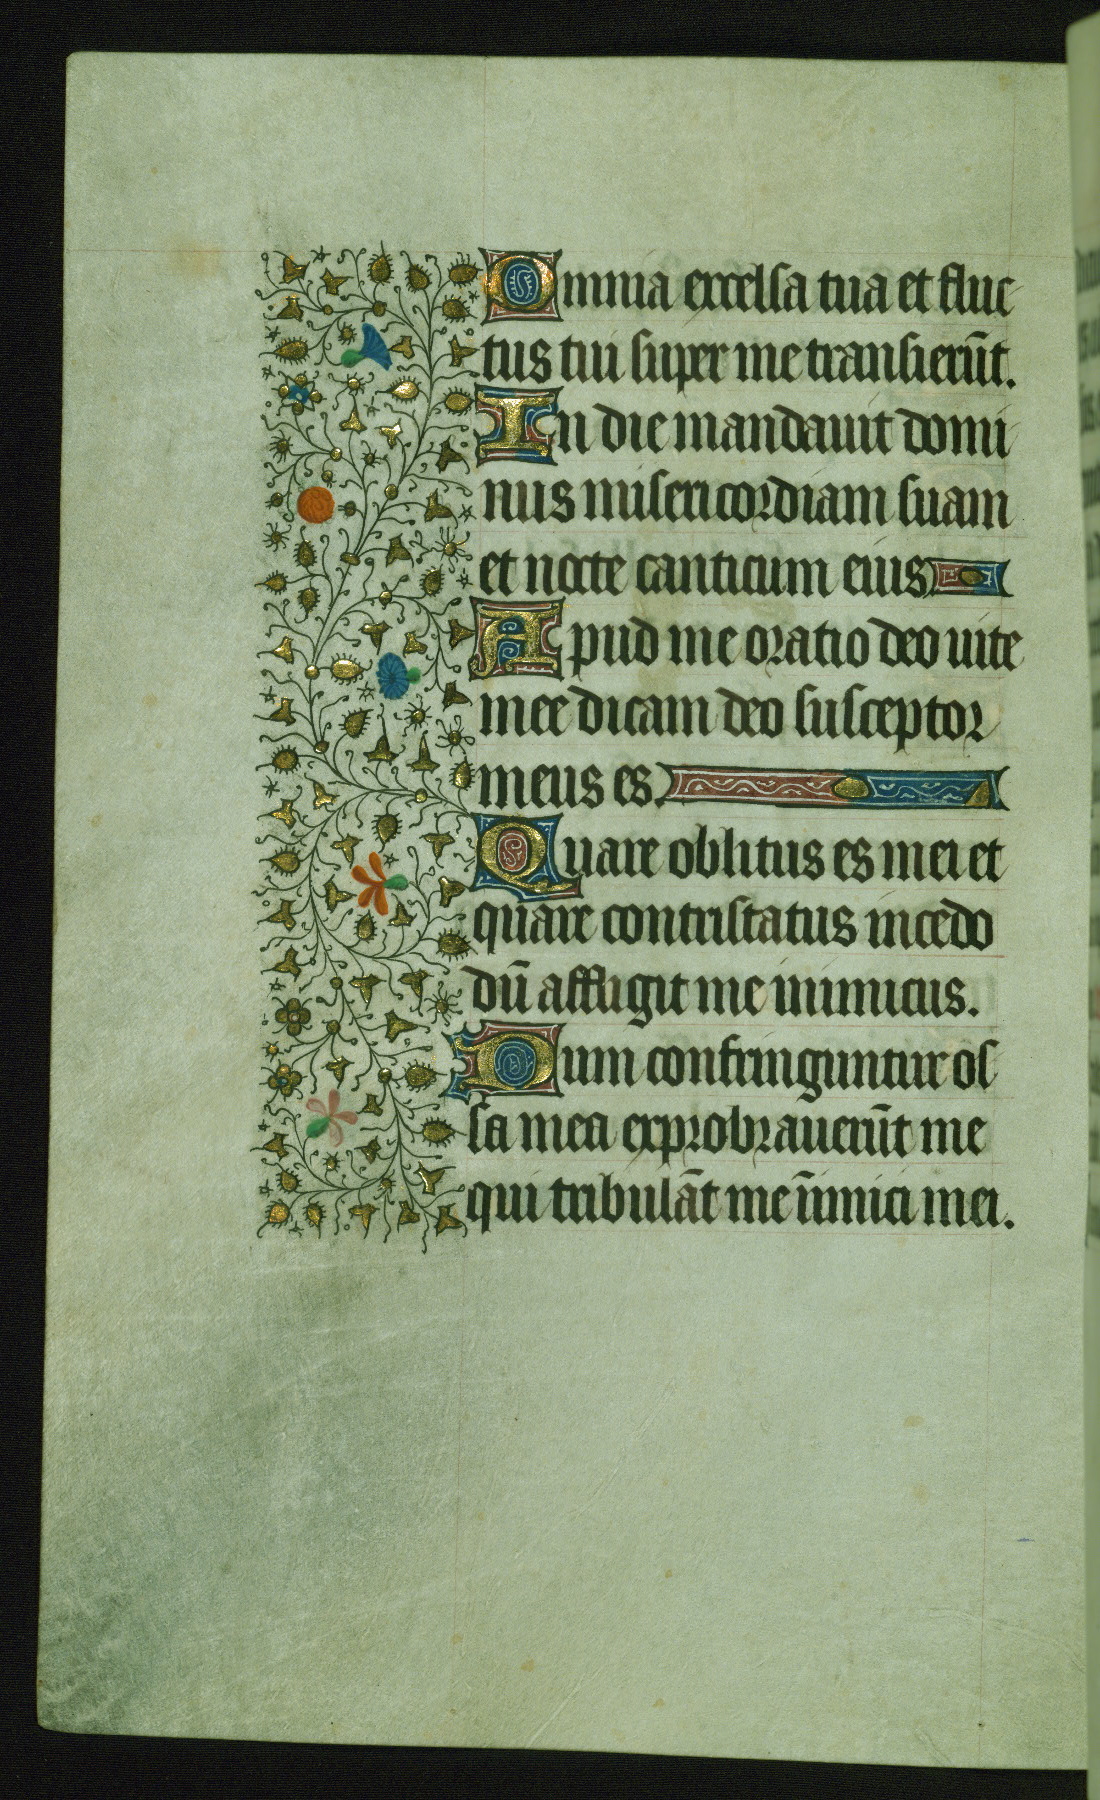 Omnia excelsa tua et fluc
tus tui super me transierūt.
In die mandauit domi
nus misericordiam suam
et nocte canticum eius
Apud me oratio deo uite
mee dicam deo susceptor
meus es.
Quare oblitus es mei et
quare contristatus incedo
dū affligit me inimicus.
Dum confringuntur os
sa mea exprobrauerūt me
qui tribulāt me īimici mei.